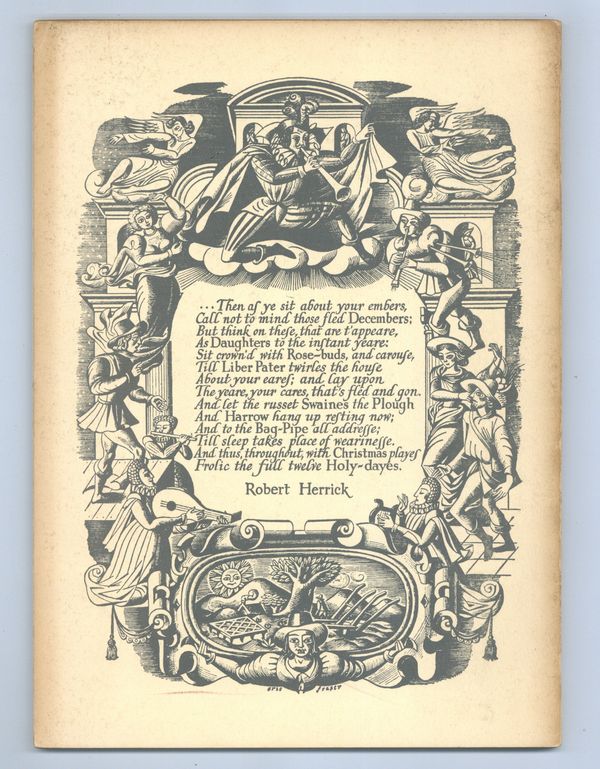 ...Then as ye sit about your embers,
Call not to mind those fled Decembers;
But think on these, that are t'appeare,
As Daughters to the instant yeare:
Sit crown'd with Rose-buds, and carouse,
Till Liber Pater twirles the house
About your eares; and lay upon
The yeare, your cares, that's fled and gon.
And let the russet Swaines the Plough
And Harrow hang up resting now;
And to the Bag-Pipe all addresse;
Till sleep takes place of wearinesse.
And thus, throughout, with Christmas playes
Frolic the full twelve Holy-dayes.
Robert Herrick